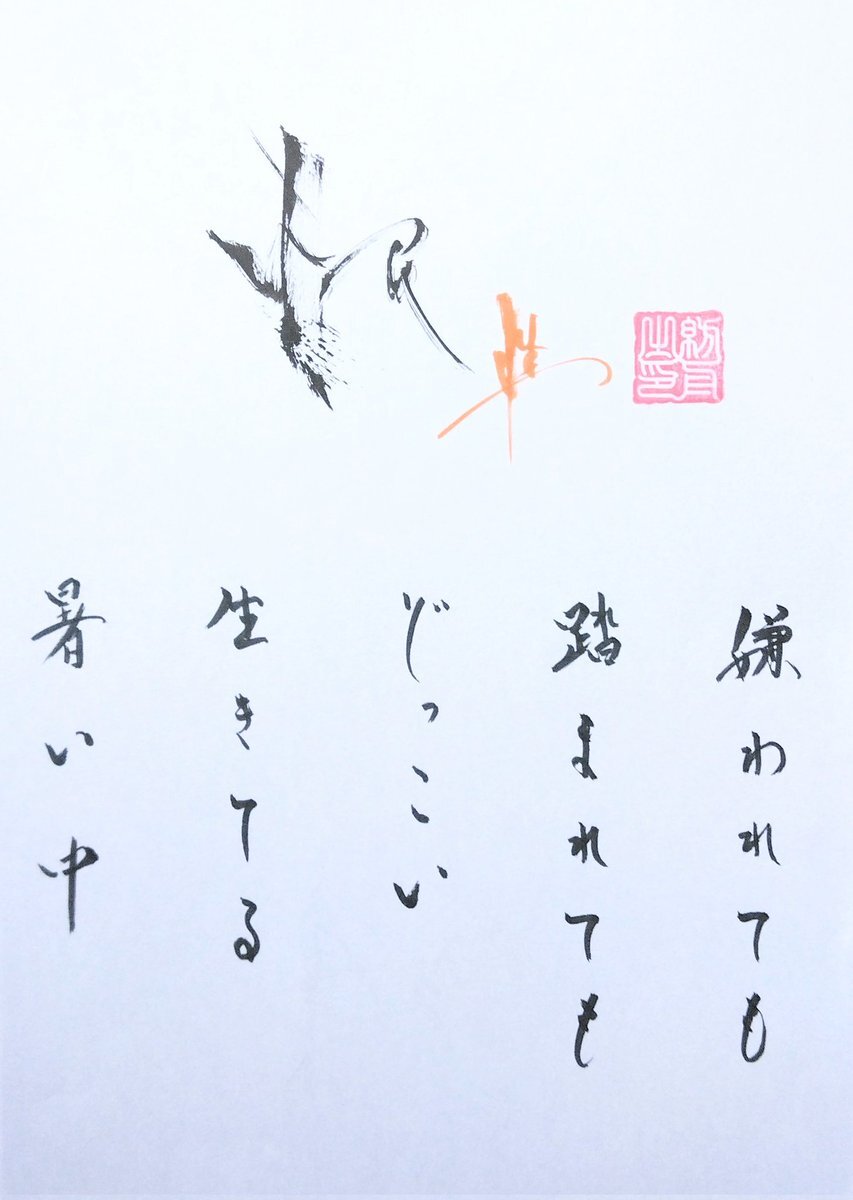 嫌われても
踏まれても
どっこい
生きてる
暑い中